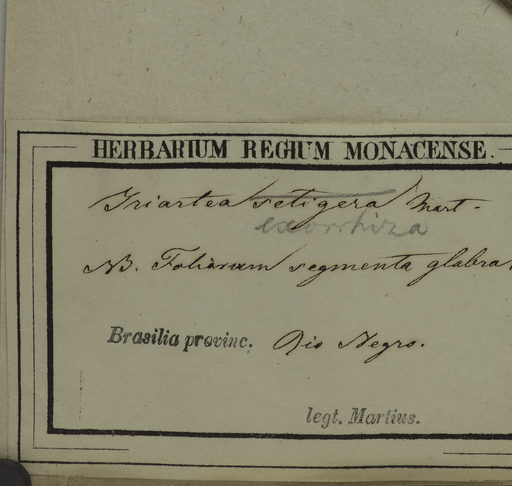 HERBARIUM REGIUM MONACENSE.
Iriartea setigera Mart.
exorrhiza
NB. Foliorum segmenta glabra.
Brasilia provinc. Rio Negro.
legt. Martius.